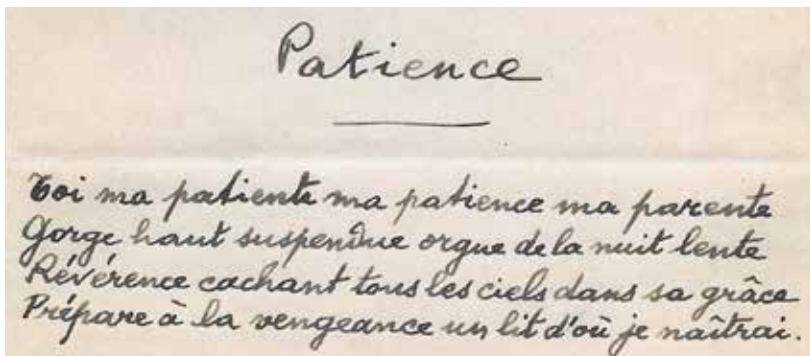 Patience
Toi ma patiente ma patience ma parente
Gorge haut suspendue orgue de la nuit lente
Révérence cachant tous les ciels dans sa grâce
Prépare à la vengeance un lit d'où je naîtrai.